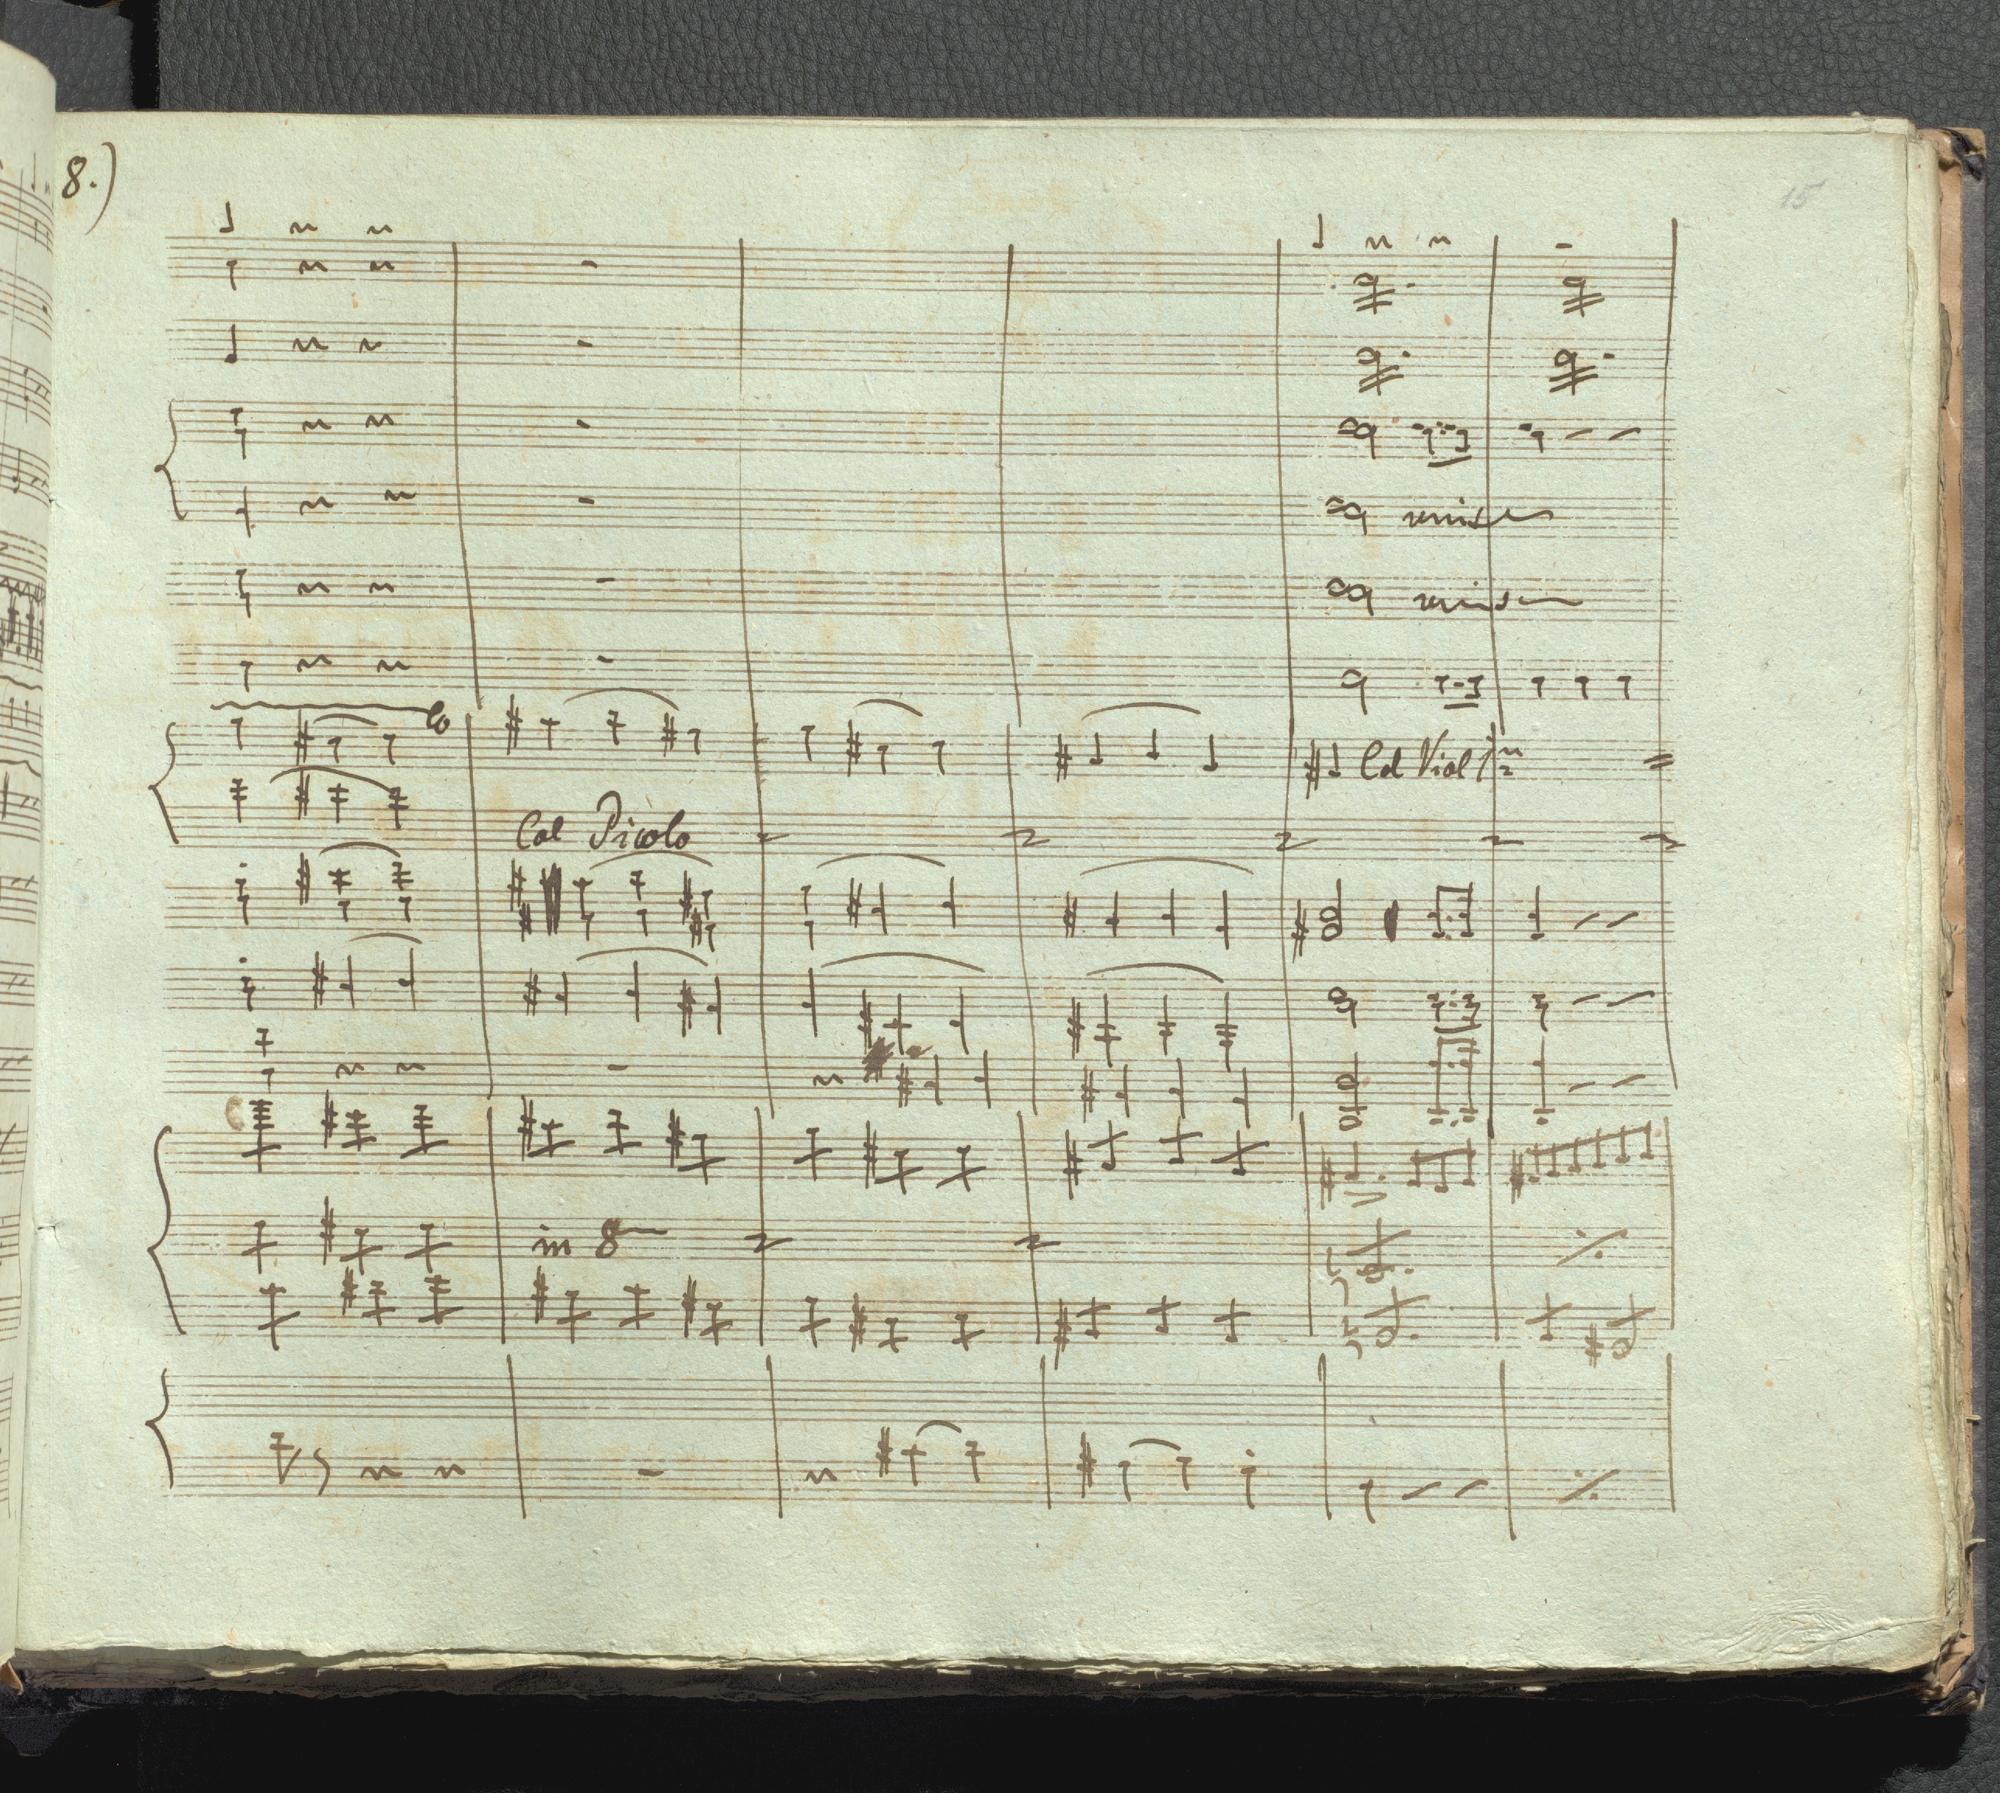 8.)
15
unis
unis
Col Viol 1
Col Picolo
in 8